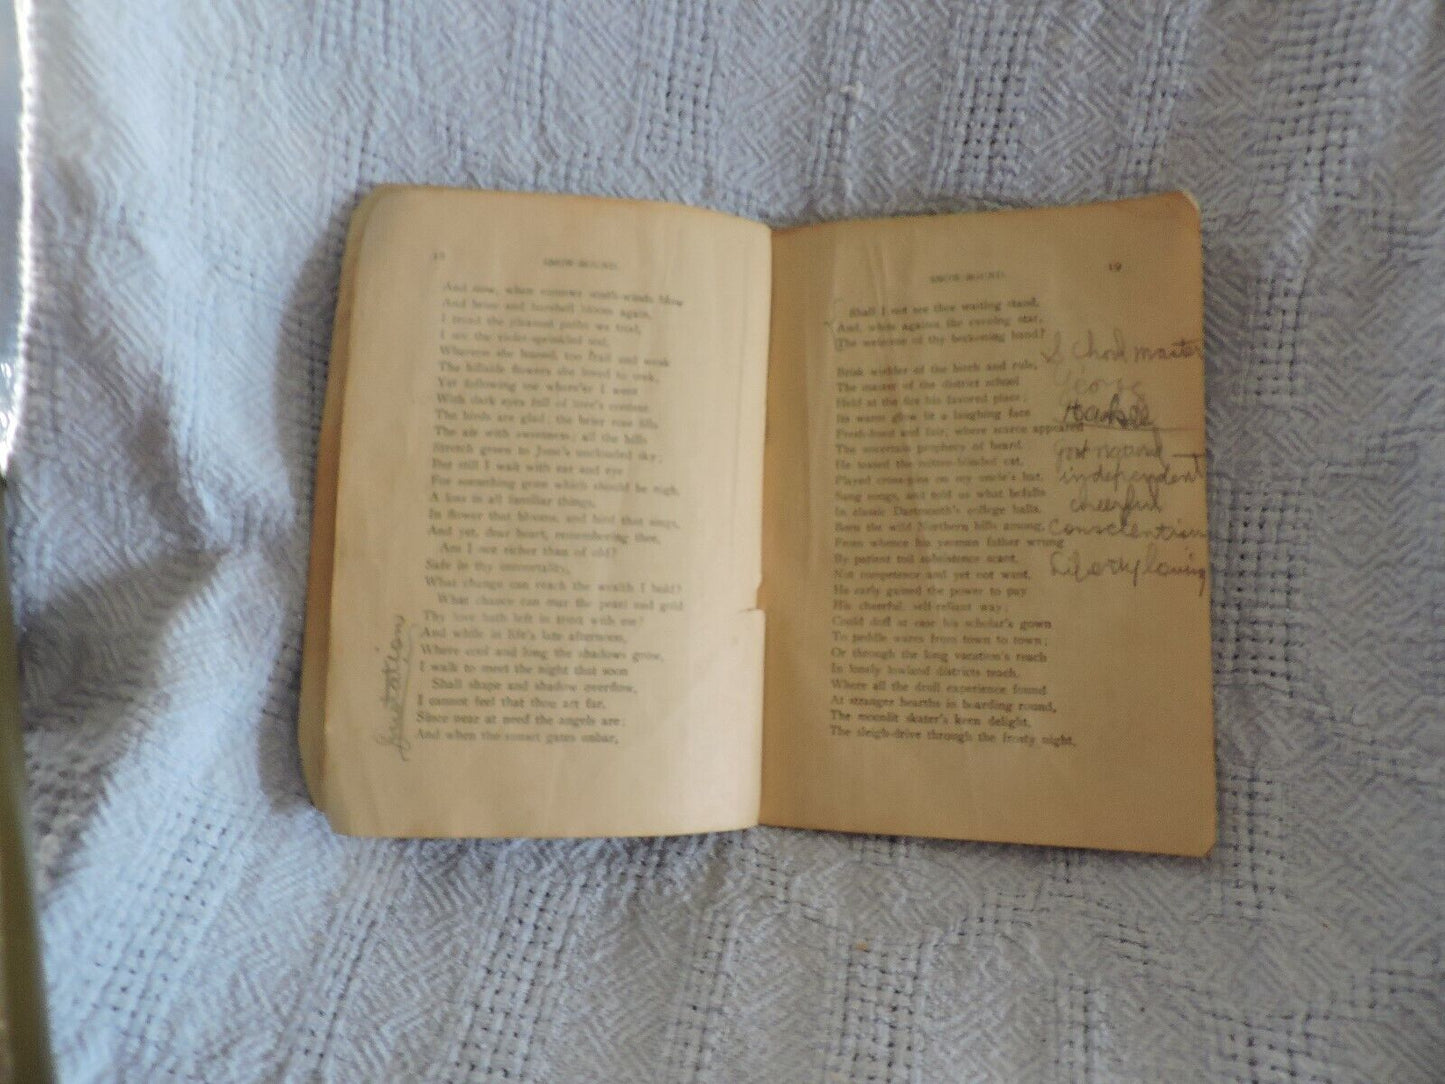 18
SNOW-BOUND.
And now, when summer south-winds blow
And brier and harebell bloom again,
I tread the pleasant paths we trod,
I see the violet-sprinkled sod,
Whereon she leaned, too frail and weak
The hillside flowers she loved to seek,
Yet following me where'er I went
With dark eyes full of love's content.
The birds are glad; the brier-rose fills
The air with sweetness; all the hills
Stretch green to June's unclouded sky;
But still I wait with ear and eye
For something gone which should be nigh,
A loss in all familiar things,
In flower that blooms, and bird that sings,
And yet, dear heart, remembering thee,
Am I not richer than of old?
Safe in thy immortality,
What change can reach the wealth I hold?
What chance can mar the pearl and gold
Thy love hath left in trust with me?
And while in life's late afternoon,
Where cool and long the shadows grow,
I walk to meet the night that soon
Shall shape and shadow overflow,
I cannot feel that thou art far,
Since near at need the angels are;
And when the sunset gates unbar,
SNOW-BOUND.
19
Shall I not see thee waiting stand,
And, white against the evening star,
The welcome of thy beckoning hand?
Brisk wielder of the birch and rule,
The master of the district school
Held at the fire his favored place;
Its warm glow lit a laughing face
Fresh-hued and fair, where scarce appeared
The uncertain prophecy of beard.
He teased the mitten-blinded cat,
Played cross-pins on my uncle's hat,
Sang songs, and told us what befalls
In classic Dartmouth's college halls.
Born the wild Northern hills among,
From whence his yeoman father wrung
By patient toil subsistence scant,
Not competence and yet not want,
He early gained the power to pay
His cheerful, self-reliant way;
Could doff at ease his scholar's gown
To peddle wares from town to town;
Or through the long vacation's reach
In lonely lowland districts teach,
Where all the droll experience found
At stranger hearths in boarding round,
The moonlit skater's keen delight,
The sleigh-drive through the frosty night,
School master
George
independent
cheerful